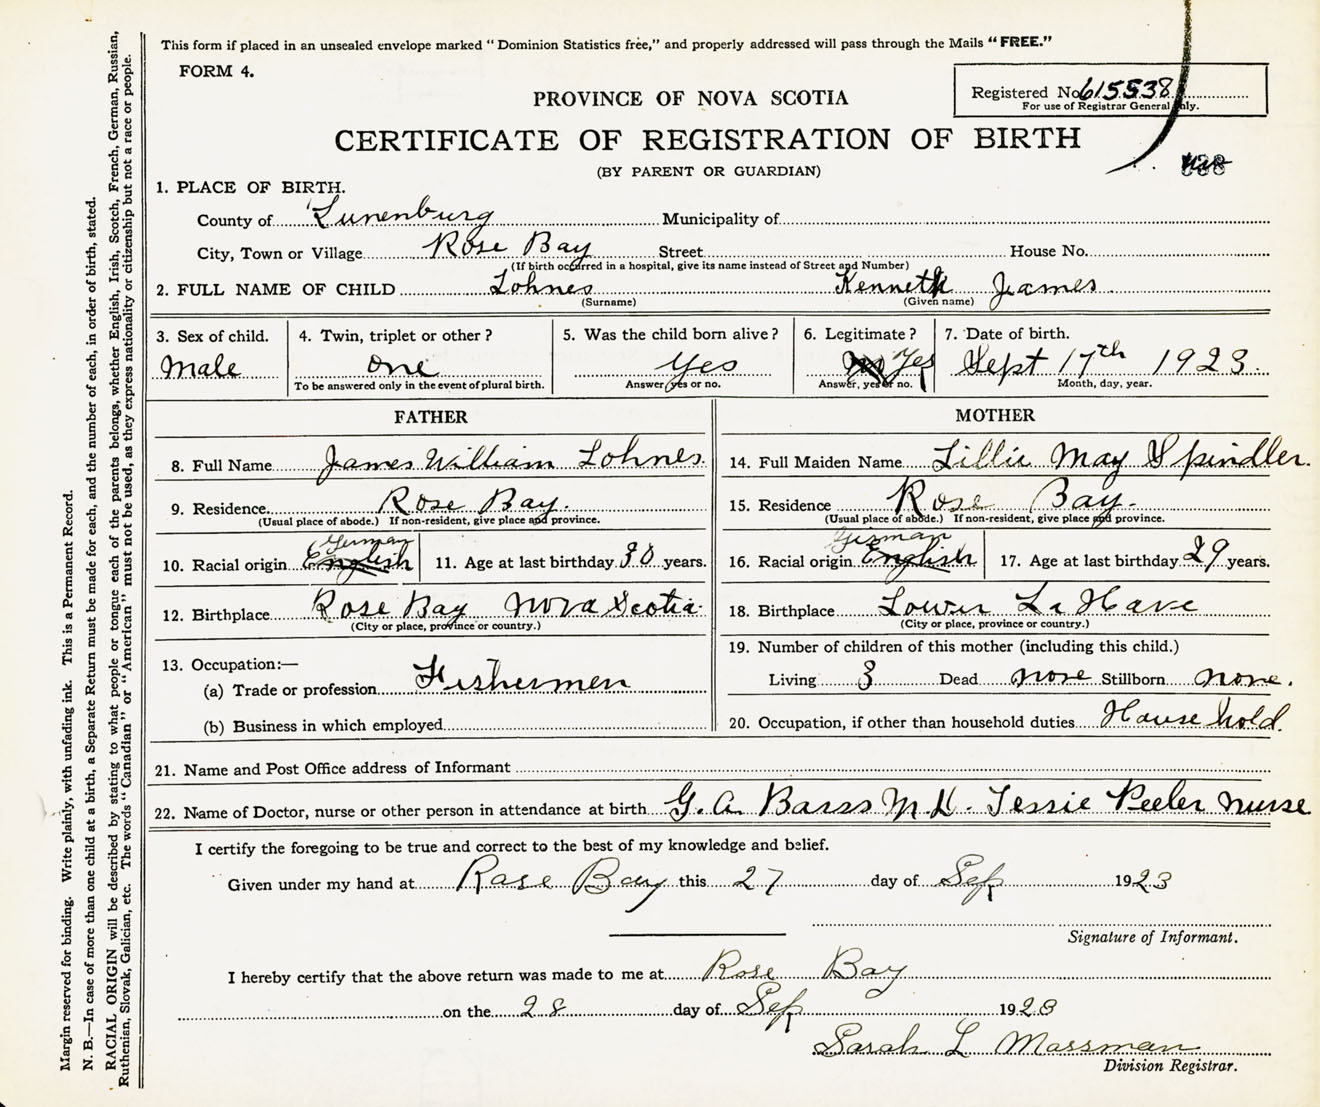 This form if placed in an unsealed envelope marked "Dominion Statistics free," and properly addressed will pass through the Mails "FREE."
FORM 4.
Registered No. 615538
For use of Registrar General only.
PROVINCE OF NOVA SCOTIA
CERTIFICATE OF REGISTRATION OF BIRTH
(BY PARENT OR GUARDIAN)
1. PLACE OF BIRTH.
County of Lunenburg Municipality of
City, Town or Village Rose Bay Street House No.
(If birth occurred in a hospital, give its name instead of Street and Number)
2. FULL NAME OF CHILD Lohnes Kenneth James
(Surname) (Given name)
3. Sex of child. 4. Twin, triplet or other? 5. Was the child born alive? 6. Legitimate? 7. Date of birth.
Male One Yes Yes Sept 17th 1923.
To be answered only in the event of plural birth. Answer, yes or no. Answer, yes or no. Month, day, year.
FATHER
8. Full Name James William Lohnes.
9. Residence Rose Bay.
(Usual place of abode.) If non-resident, give place and province.
German
10. Racial origin English 11. Age at last birthday 30 years.
12. Birthplace Rose Bay Nova Scotia.
(City or place, province or country.)
13. Occupation:—
(a) Trade or profession Fishermen
(b) Business in which employed
MOTHER
14. Full Maiden Name Lillie May Spindler.
15. Residence Rose Bay.
(Usual place of abode.) If non-resident, give place and province.
German
16. Racial origin English 17. Age at last birthday 29 years.
18. Birthplace Lower La Have
(City or place, province or country.)
19. Number of children of this mother (including this child.)
Living 3 Dead none Stillborn none.
20. Occupation, if other than household duties House hold.
21. Name and Post Office address of Informant
22. Name of Doctor, nurse or other person in attendance at birth G. A. Barss M.D. Tessie Peeler nurse
I certify the foregoing to be true and correct to the best of my knowledge and belief.
Given under my hand at Rose Bay this 27 day of Sep 1923
Signature of Informant.
I hereby certify that the above return was made to me at Rose Bay
on the 28 day of Sep 1923
Sarah L Mossman
Division Registrar.
Margin reserved for binding. Write plainly, with unfading ink. This is a Permanent Record.
N. B.—In case of more than one child at a birth, a Separate Return must be made for each, and the number of each, in order of birth, stated.
RACIAL ORIGIN will be described by stating to what people or tongue each of the parents belongs, whether English, Irish, Scotch, French, German, Russian,
Ruthenian, Slovak, Galician, etc. The words "Canadian" or "American" must not be used, as they express nationality or citizenship but not a race or people.